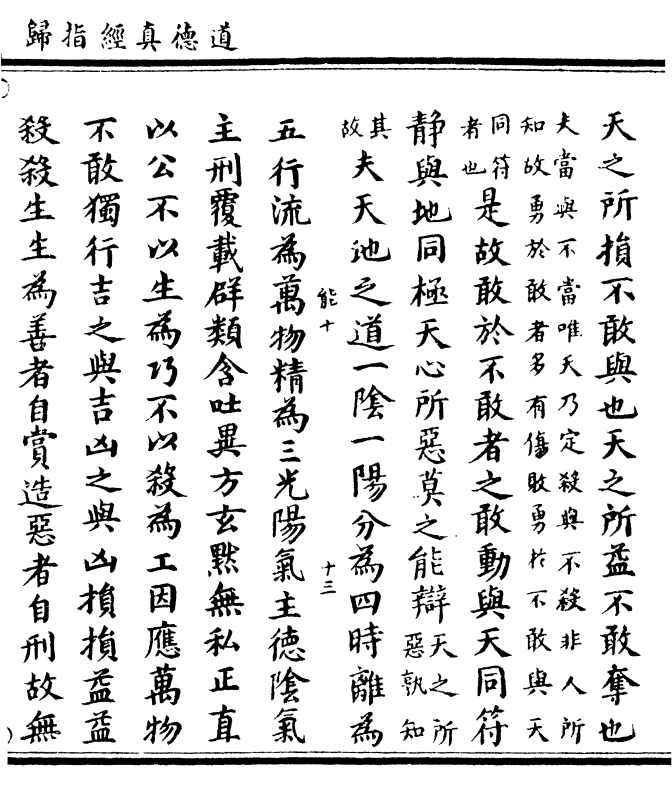 道德真經指歸
天之所損不敢與也天之所益不敢奪也
夫當與不當唯天乃定殺與不殺非人所
知故勇於敢者多有傷敗勇於不敢與天
同符
者也
是故敢於不敢者之敢動與天同符
静與地同極天心所惡莫之能辯
天之所
惡孰知
其
故
夫天地之道一陰一陽分為四時離為
能十
十三
五行流為萬物精為三光陽氣主德陰氣
主刑覆載群類含吐異方玄黙無私正直
以公不以生為巧不以殺為工因應萬物
不敢獨行吉之與吉凶之與凶損損益益
殺殺生生為善者自賞造惡者自刑故無